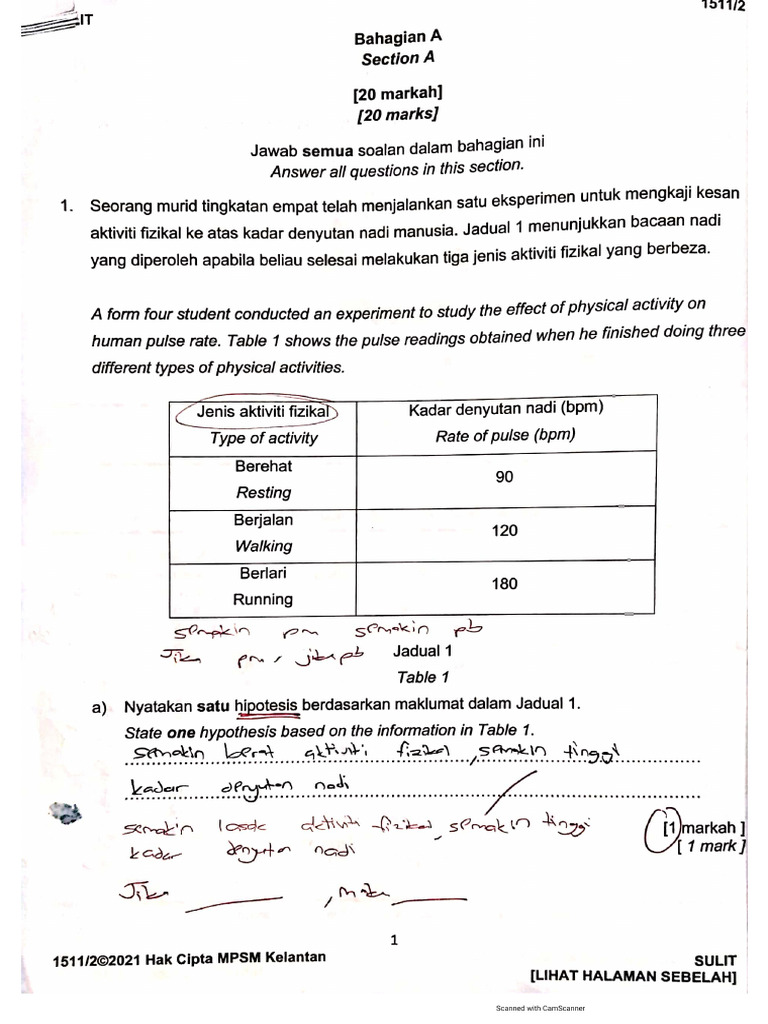 IT
1511/2
Bahagian A
Section A
[20 markah]
[20 marks]
Jawab semua soalan dalam bahagian ini
Answer all questions in this section.
1. Seorang murid tingkatan empat telah menjalankan satu eksperimen untuk mengkaji kesan
aktiviti fizikal ke atas kadar denyutan nadi manusia. Jadual 1 menunjukkan bacaan nadi
yang diperoleh apabila beliau selesai melakukan tiga jenis aktiviti fizikal yang berbeza.
A form four student conducted an experiment to study the effect of physical activity on
human pulse rate. Table 1 shows the pulse readings obtained when he finished doing three
different types of physical activities.
Jenis aktiviti fizikal
Type of activity
Kadar denyutan nadi (bpm)
Rate of pulse (bpm)
Berehat
Resting
90
Berjalan
Walking
120
Berlari
Running
180
semakin pm semakin pb
Jika pm, jika pb
Jadual 1
Table 1
a) Nyatakan satu hipotesis berdasarkan maklumat dalam Jadual 1.
State one hypothesis based on the information in Table 1.
semakin berat aktiviti fizikal, semakin tinggi
kadar denyutan nadi
semakin aktiviti fizikal, semakin tinggi
kadar denyutan nadi
[1 markah]
[1 mark]
Jika ________, maka ________
1
1511/2©2021 Hak Cipta MPSM Kelantan
SULIT
[LIHAT HALAMAN SEBELAH]
Scanned with CamScanner